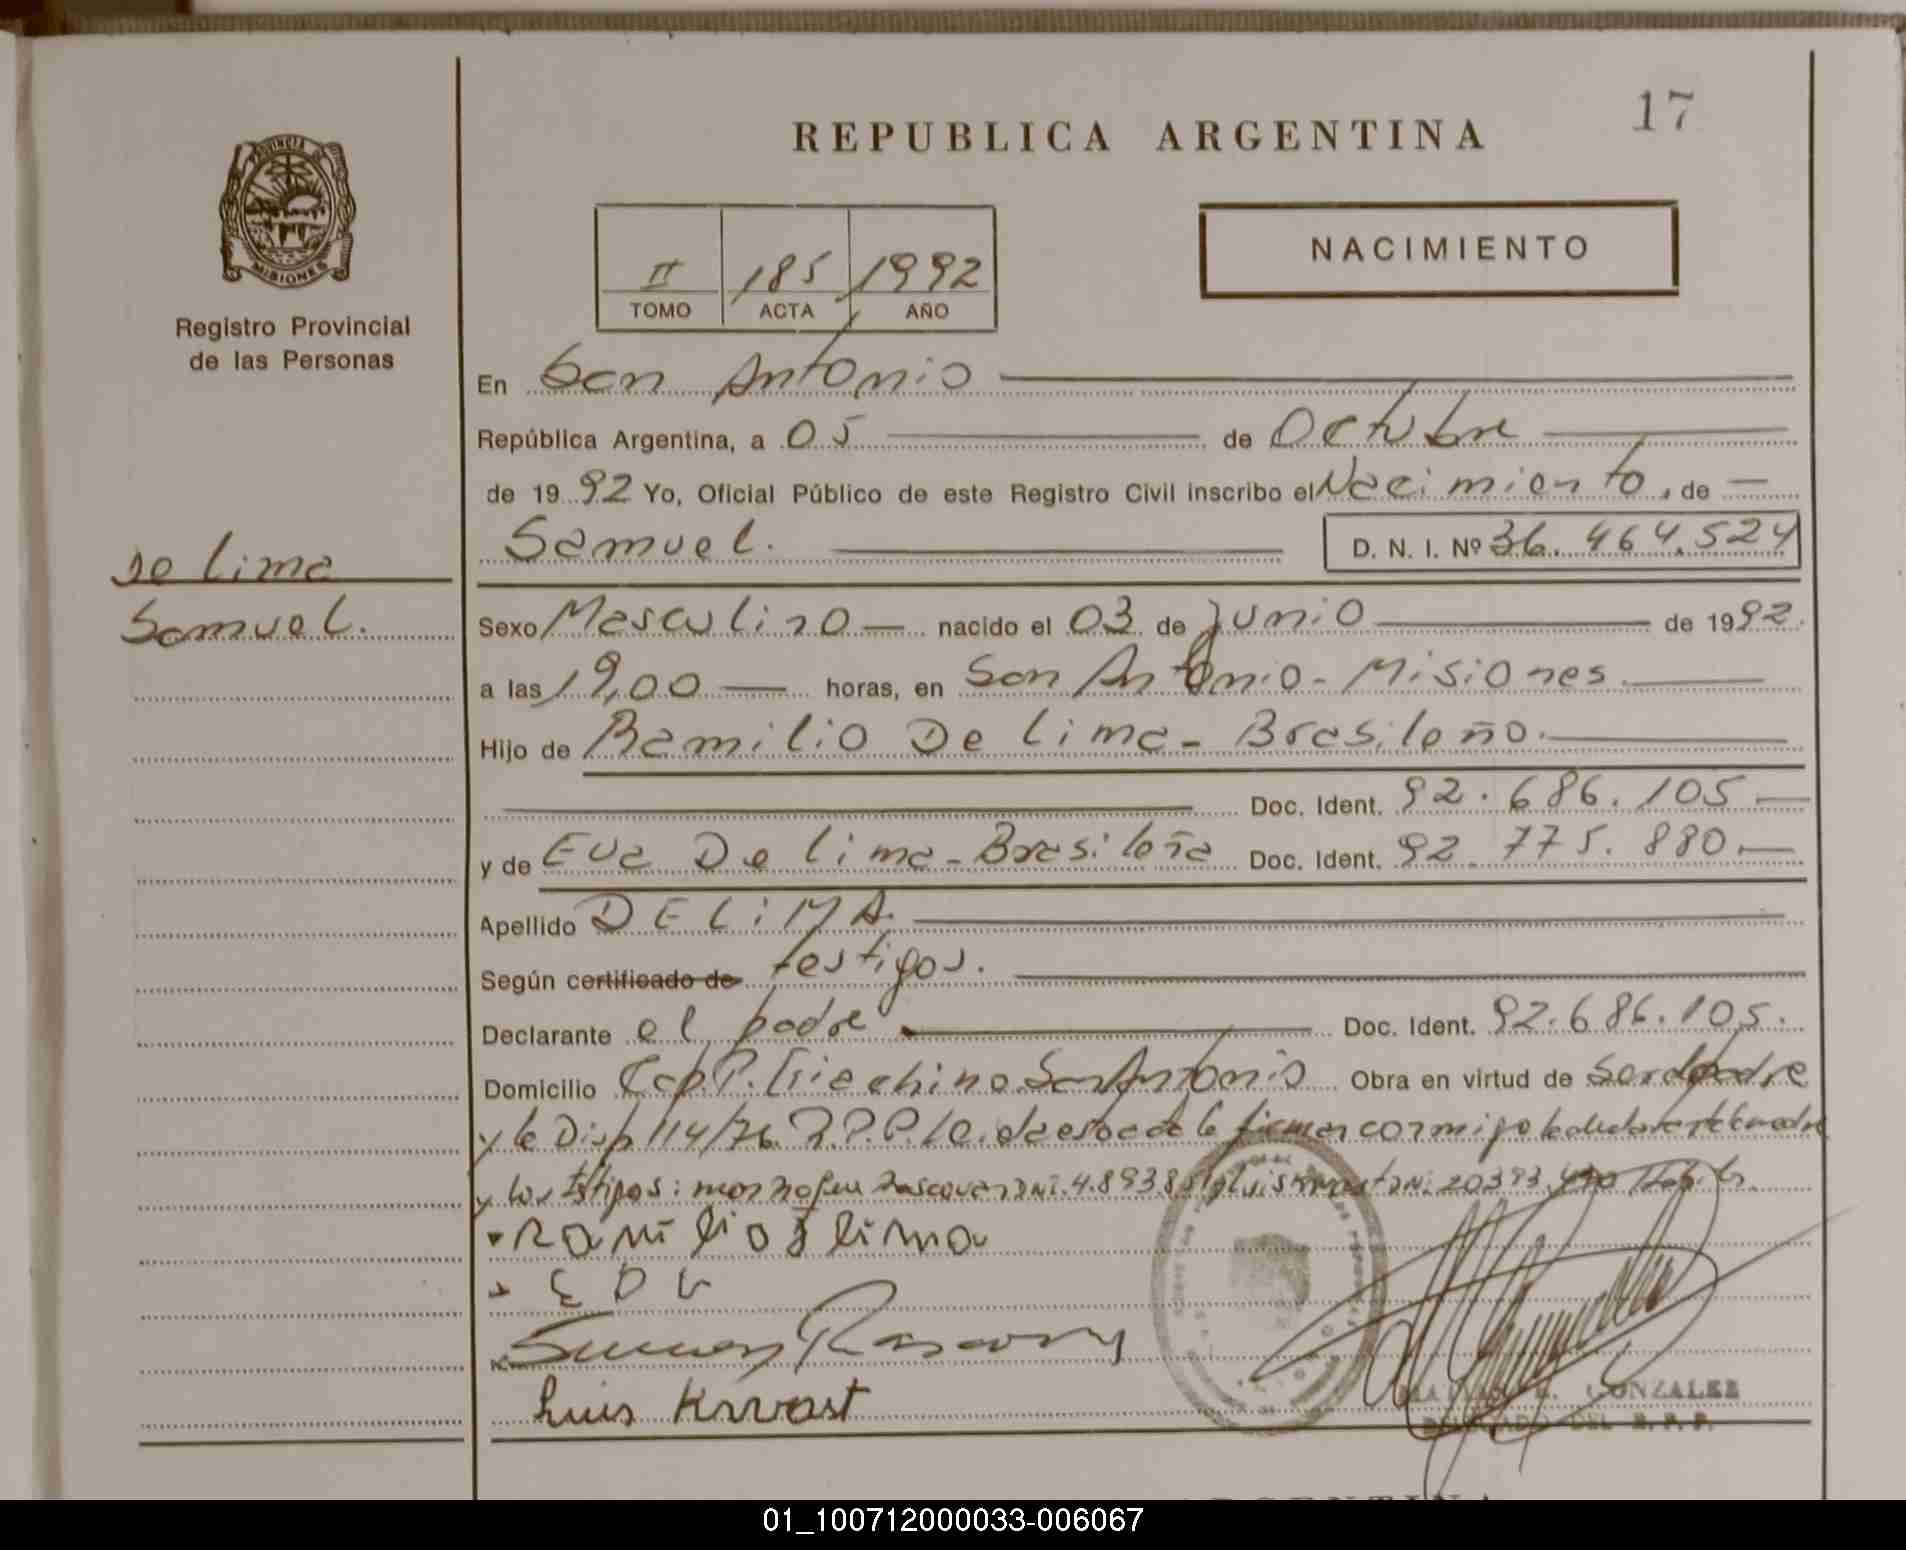 17
REPUBLICA ARGENTINA
PROVINCIA DE
MISIONES
Registro Provincial
de las Personas
NACIMIENTO
II 185 1992
TOMO ACTA AÑO
En San Antonio
República Argentina, a 05 de Octubre
de 1992 Yo, Oficial Público de este Registro Civil inscribo el Nacimiento, de
Samuel. D. N. I. Nº 36.464.524
De lima
Samuel.
Sexo Masculino nacido el 03 de Junio de 1992.
a las 19,00 horas, en San Antonio - Misiones.
Hijo de Ramilio De lima - Brasileño.
Doc. Ident. 92.686.105
y de Eva De lima - Brasileña Doc. Ident. 92.775.880.
Apellido DE LiMA.
Según certificado de testigos.
Declarante el padre Doc. Ident. 92.686.105.
Domicilio San Antonio Obra en virtud de ser padre
y la Disp 114/76. firman conmigo la madre
y los testigos:
Ramilio d lima
E D L
Luis Krvast
GONZALEZ
DELEGADO DEL R.P.P.
ARGENTINA
01_100712000033-006067